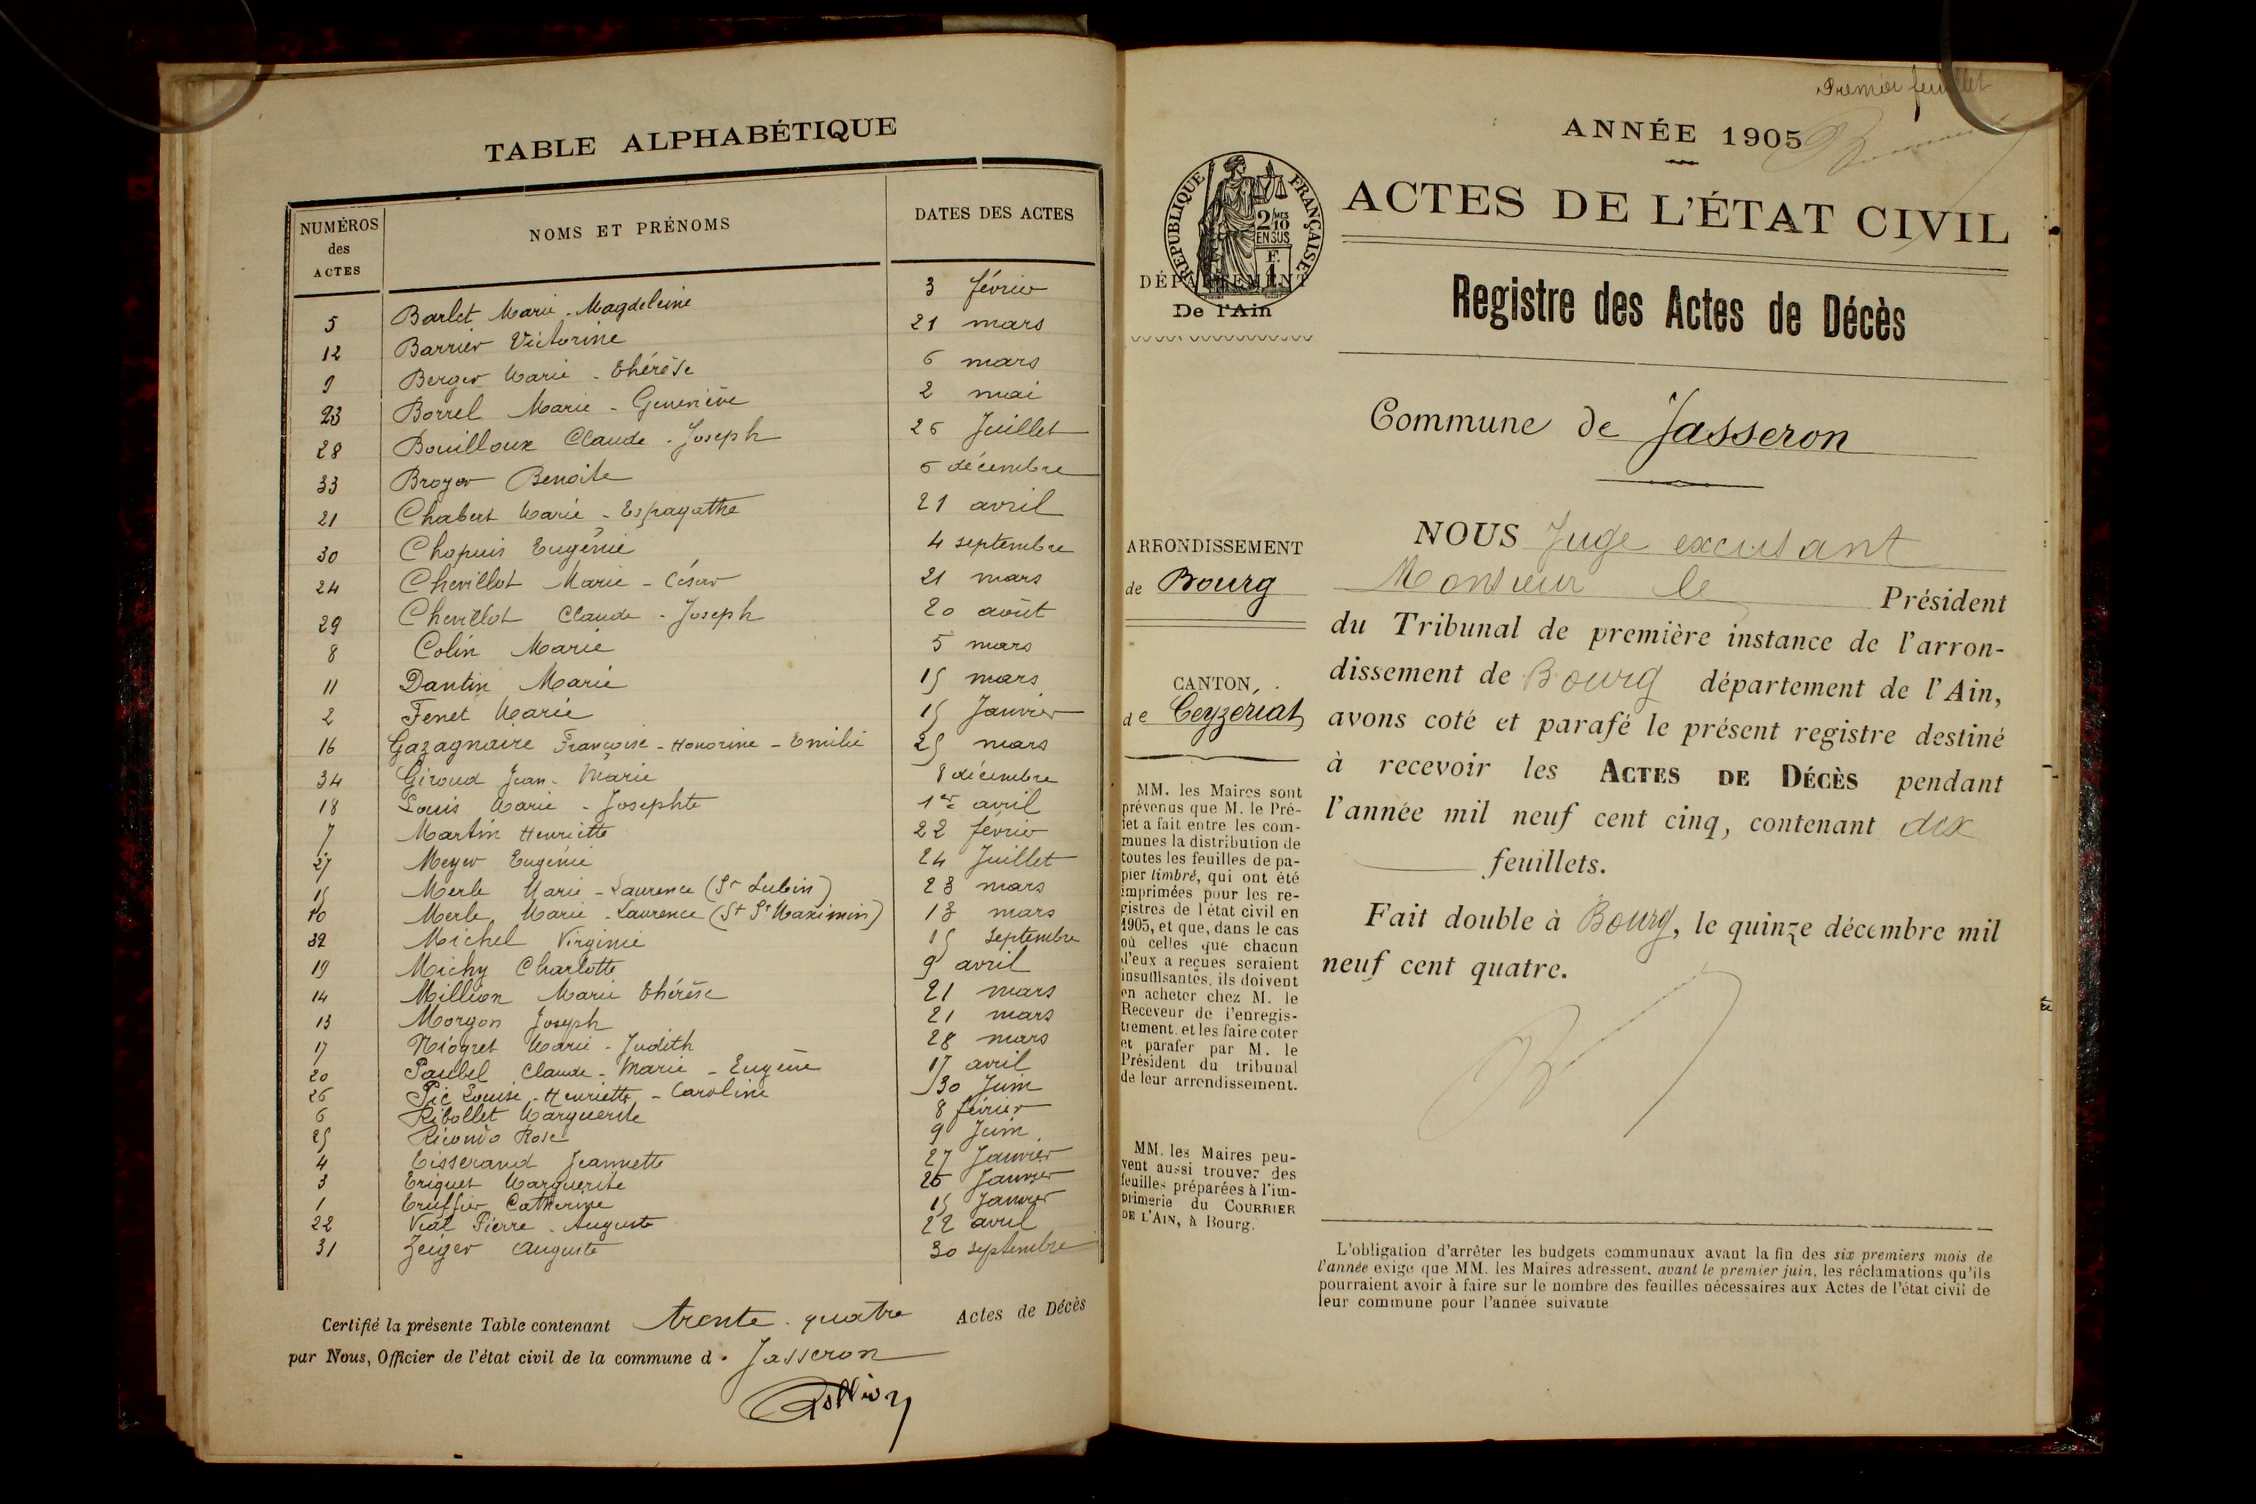 TABLE ALPHABÉTIQUE
NUMÉROS des ACTES NOMS ET PRÉNOMS DATES DES ACTES
5 Barlet Marie - Magdeleine 3 février
12 Barrier Victorine 21 mars
9 Berger Marie - Thérèse 6 mars
23 Borrel Marie - Geneviève 2 mai
28 Bouilloux Claude - Joseph 26 Juillet
33 Broyer Benoite 6 décembre
21 Chabert Marie - 21 avril
30 Chapuis Eugénie 4 septembre
24 Chevillot Marie - César 21 mars
29 Chevillot Claude - Joseph 20 août
8 Colin Marie 5 mars
11 Dantin Marie 15 mars
2 Fenet Marie 15 Janvier
16 Gazagnaire Françoise - Honorine - Emilie 25 mars
34 Giroud Jean - Marie 8 décembre
18 Louis Marie - Josephte 1er avril
7 Martin Henriette 22 février
27 Meyer Eugénie 24 Juillet
15 Merle Marie - Laurence (Sr Lubin) 23 mars
10 Merle Marie - Laurence (St Sr Maximin) 13 mars
32 Michel Virginie 15 Septembre
19 Michy Charlotte 9 avril
14 Million Marie Thérèse 21 mars
13 Morgon Joseph 21 mars
17 Niogret Marie - Judith 28 mars
20 Paubel Claude - Marie - Eugène 17 avril
26 Pic Louise - Henriette - Caroline 30 Juin
6 Ribollet Marguerite 8 février
25 Rose 9 Juin
4 Tisserand Jeannette 27 Janvier
3 Triquet Marguerite 26 Janvier
1 Truffier Catherine 15 Janvier
22 Vial Pierre - Auguste 22 avril
31 Zeiger Auguste 30 septembre
Certifié la présente Table contenant trente - quatre Actes de Décès
par Nous, Officier de l'état civil de la commune d. Jasseron
Premier feuillet
ANNÉE 1905
ACTES DE L'ÉTAT CIVIL
RÉPUBLIQUE FRANÇAISE
2/10 MES
EN SUS
F.
1
DÉPARTEMENT
De l'Ain
Registre des Actes de Décès
Commune de Jasseron
ARRONDISSEMENT
de Bourg
CANTON
de Ceyzériat
MM. les Maires sont
prévenus que M. le Pré-
fet a fait entre les com-
munes la distribution de
toutes les feuilles de pa-
pier timbré, qui ont été
imprimées pour les re-
gistres de l'état civil en
1905, et que, dans le cas
où celles que chacun
d'eux a reçues seraient
insuffisantes, ils doivent
en acheter chez M. le
Receveur de l'enregis-
trement, et les faire coter
et parafer par M. le
Président du tribunal
de leur arrondissement.
MM. les Maires peu-
vent aussi trouver des
feuilles préparées à l'im-
primerie du COURRIER
DE L'AIN, à Bourg.
NOUS Juge excusant
Monsieur le Président
du Tribunal de première instance de l'arron-
dissement de Bourg département de l'Ain,
avons coté et parafé le présent registre destiné
à recevoir les ACTES DE DÉCÈS pendant
l'année mil neuf cent cinq, contenant dix
feuillets.
Fait double à Bourg, le quinze décembre mil
neuf cent quatre.
L'obligation d'arrêter les budgets communaux avant la fin des six premiers mois de
l'année exige que MM. les Maires adressent, avant le premier juin, les réclamations qu'ils
pourraient avoir à faire sur le nombre des feuilles nécessaires aux Actes de l'état civil de
leur commune pour l'année suivante